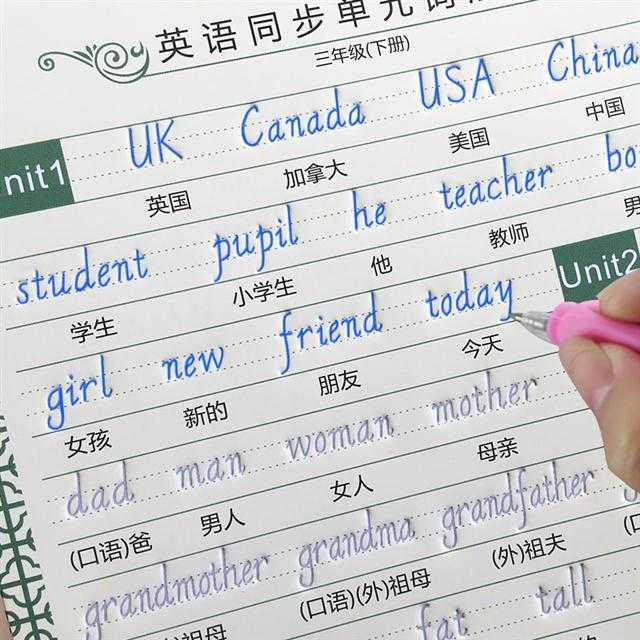 英语同步单元词
三年级(下册)
nit1 UK Canada USA China
英国 加拿大 美国 中国
student pupil he teacher bo
学生 小学生 他 教师 男
Unit2
girl new friend today
女孩 新的 朋友 今天
dad man woman mother
(口语)爸 男人 女人 母亲
grandmother grandma grandfather
祖母 (口语)(外)祖母 (外)祖夫
fat tall